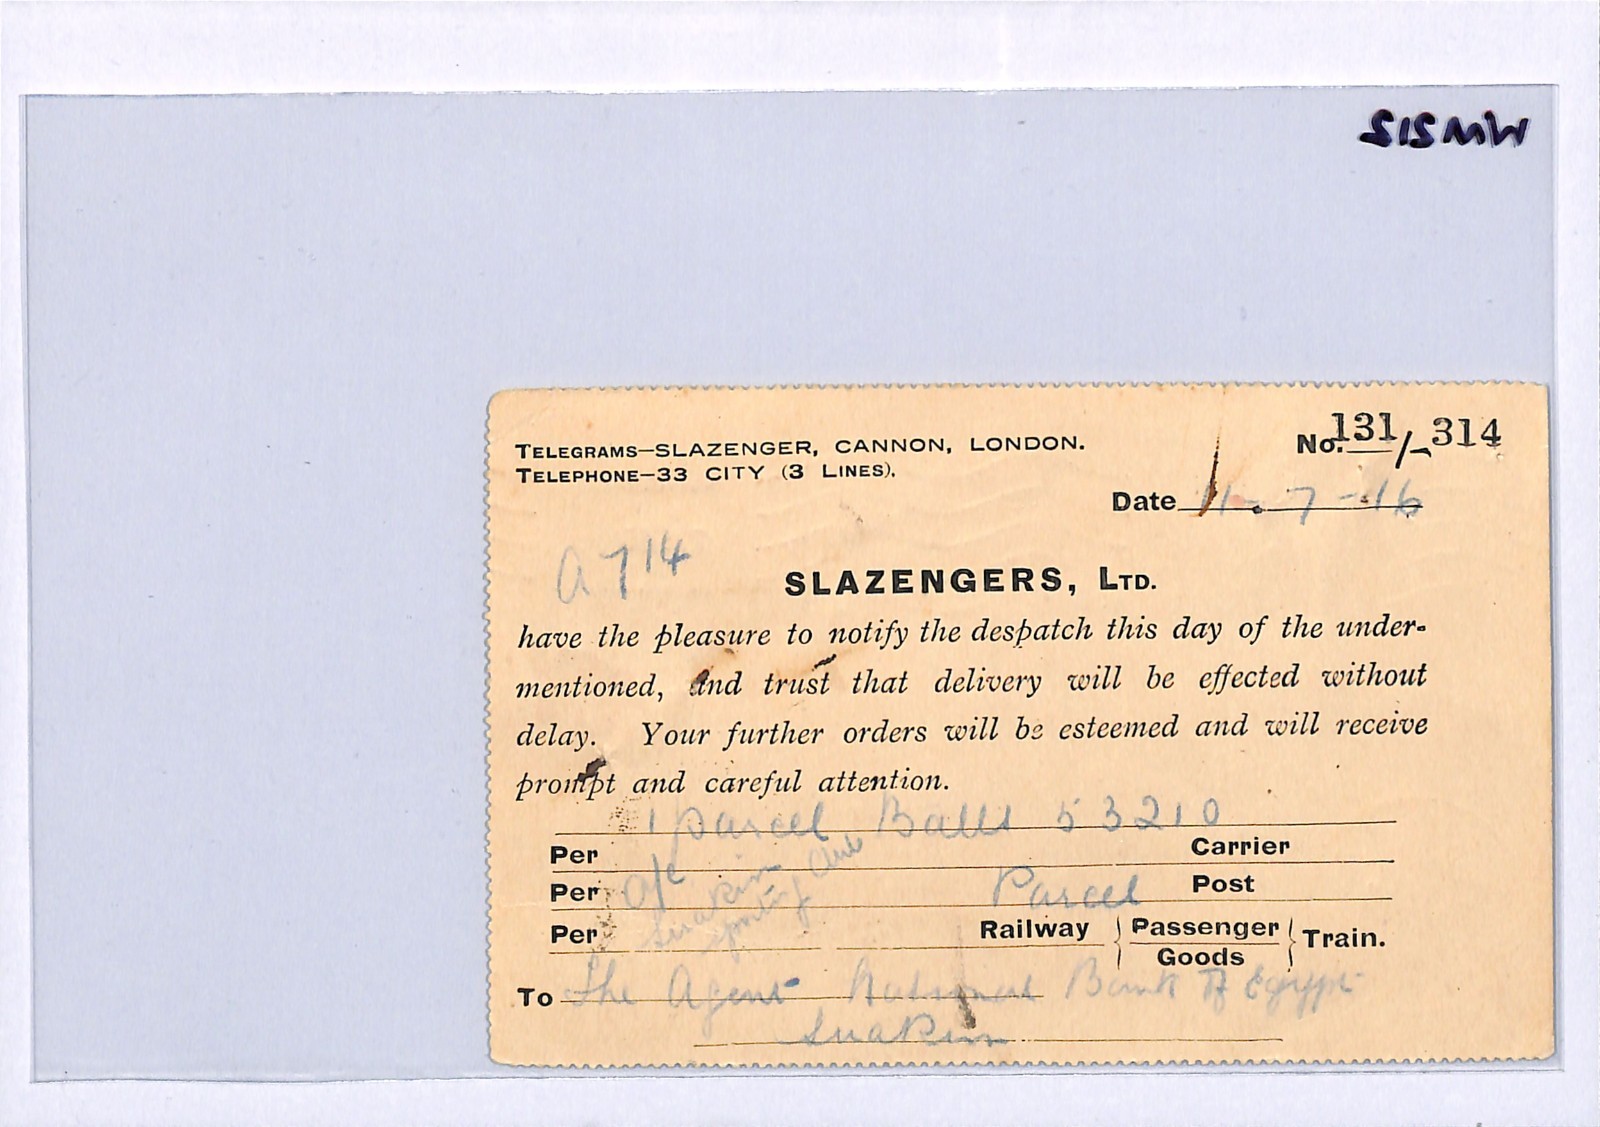 TELEGRAMS—SLAZENGER, CANNON, LONDON.
TELEPHONE—33 CITY (3 LINES).
No. 131/-314
Date 11-7-16
A 714
SLAZENGERS, LTD.
have the pleasure to notify the despatch this day of the under-
mentioned, and trust that delivery will be effected without
delay. Your further orders will be esteemed and will receive
prompt and careful attention.
1 Parcel Balls 53210
Per Carrier
Per a/c Parcel Post
Suakin
Sporting Club
Per Railway { Passenger / Goods } Train.
To The Agent National Bank of Egypt
Suakin